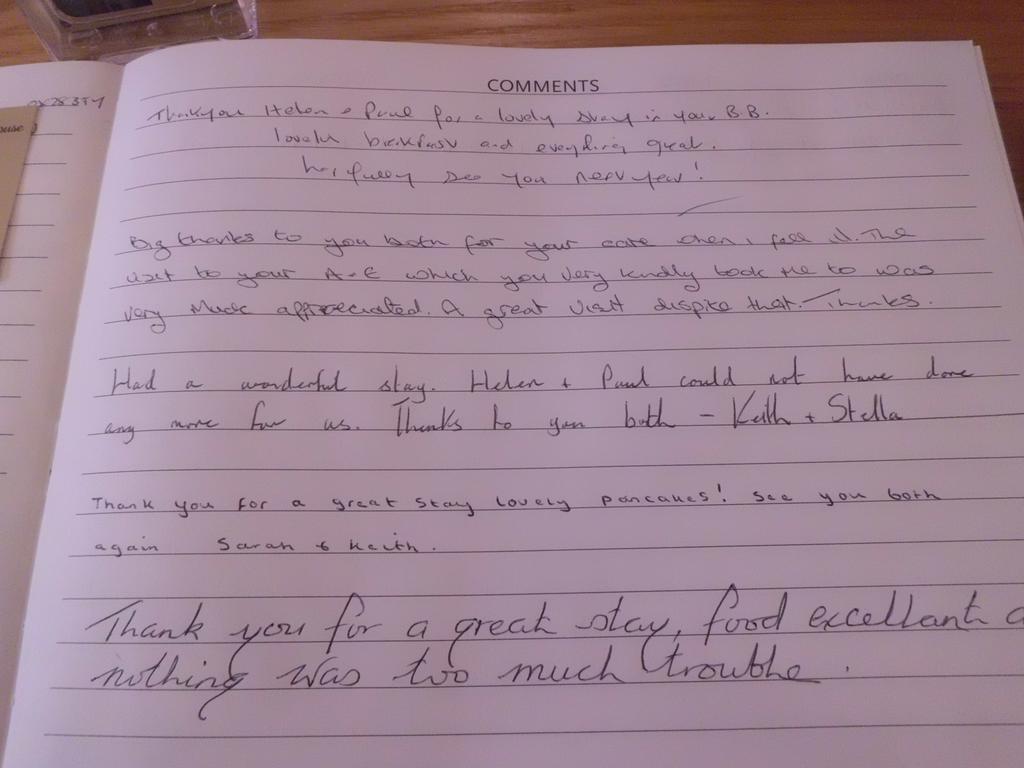 COMMENTS
Thankyou Helen & Paul for a lovely stay in your B.B.
lovely breakfast and everything great.
hopfully see you next year!
Big thanks to you both for your care when I fell ill. The
visit to your A-E which you very kindly took me to was
very much appreciated. A great visit dispite that. Thanks.
Had a wonderful stay. Helen + Paul could not have done
any more for us. Thanks to you both - Keith + Stella
Thank you for a great stay lovely pancakes! see you both
again Sarah & Keith.
Thank you for a great stay, food excellant
nothing was too much trouble.